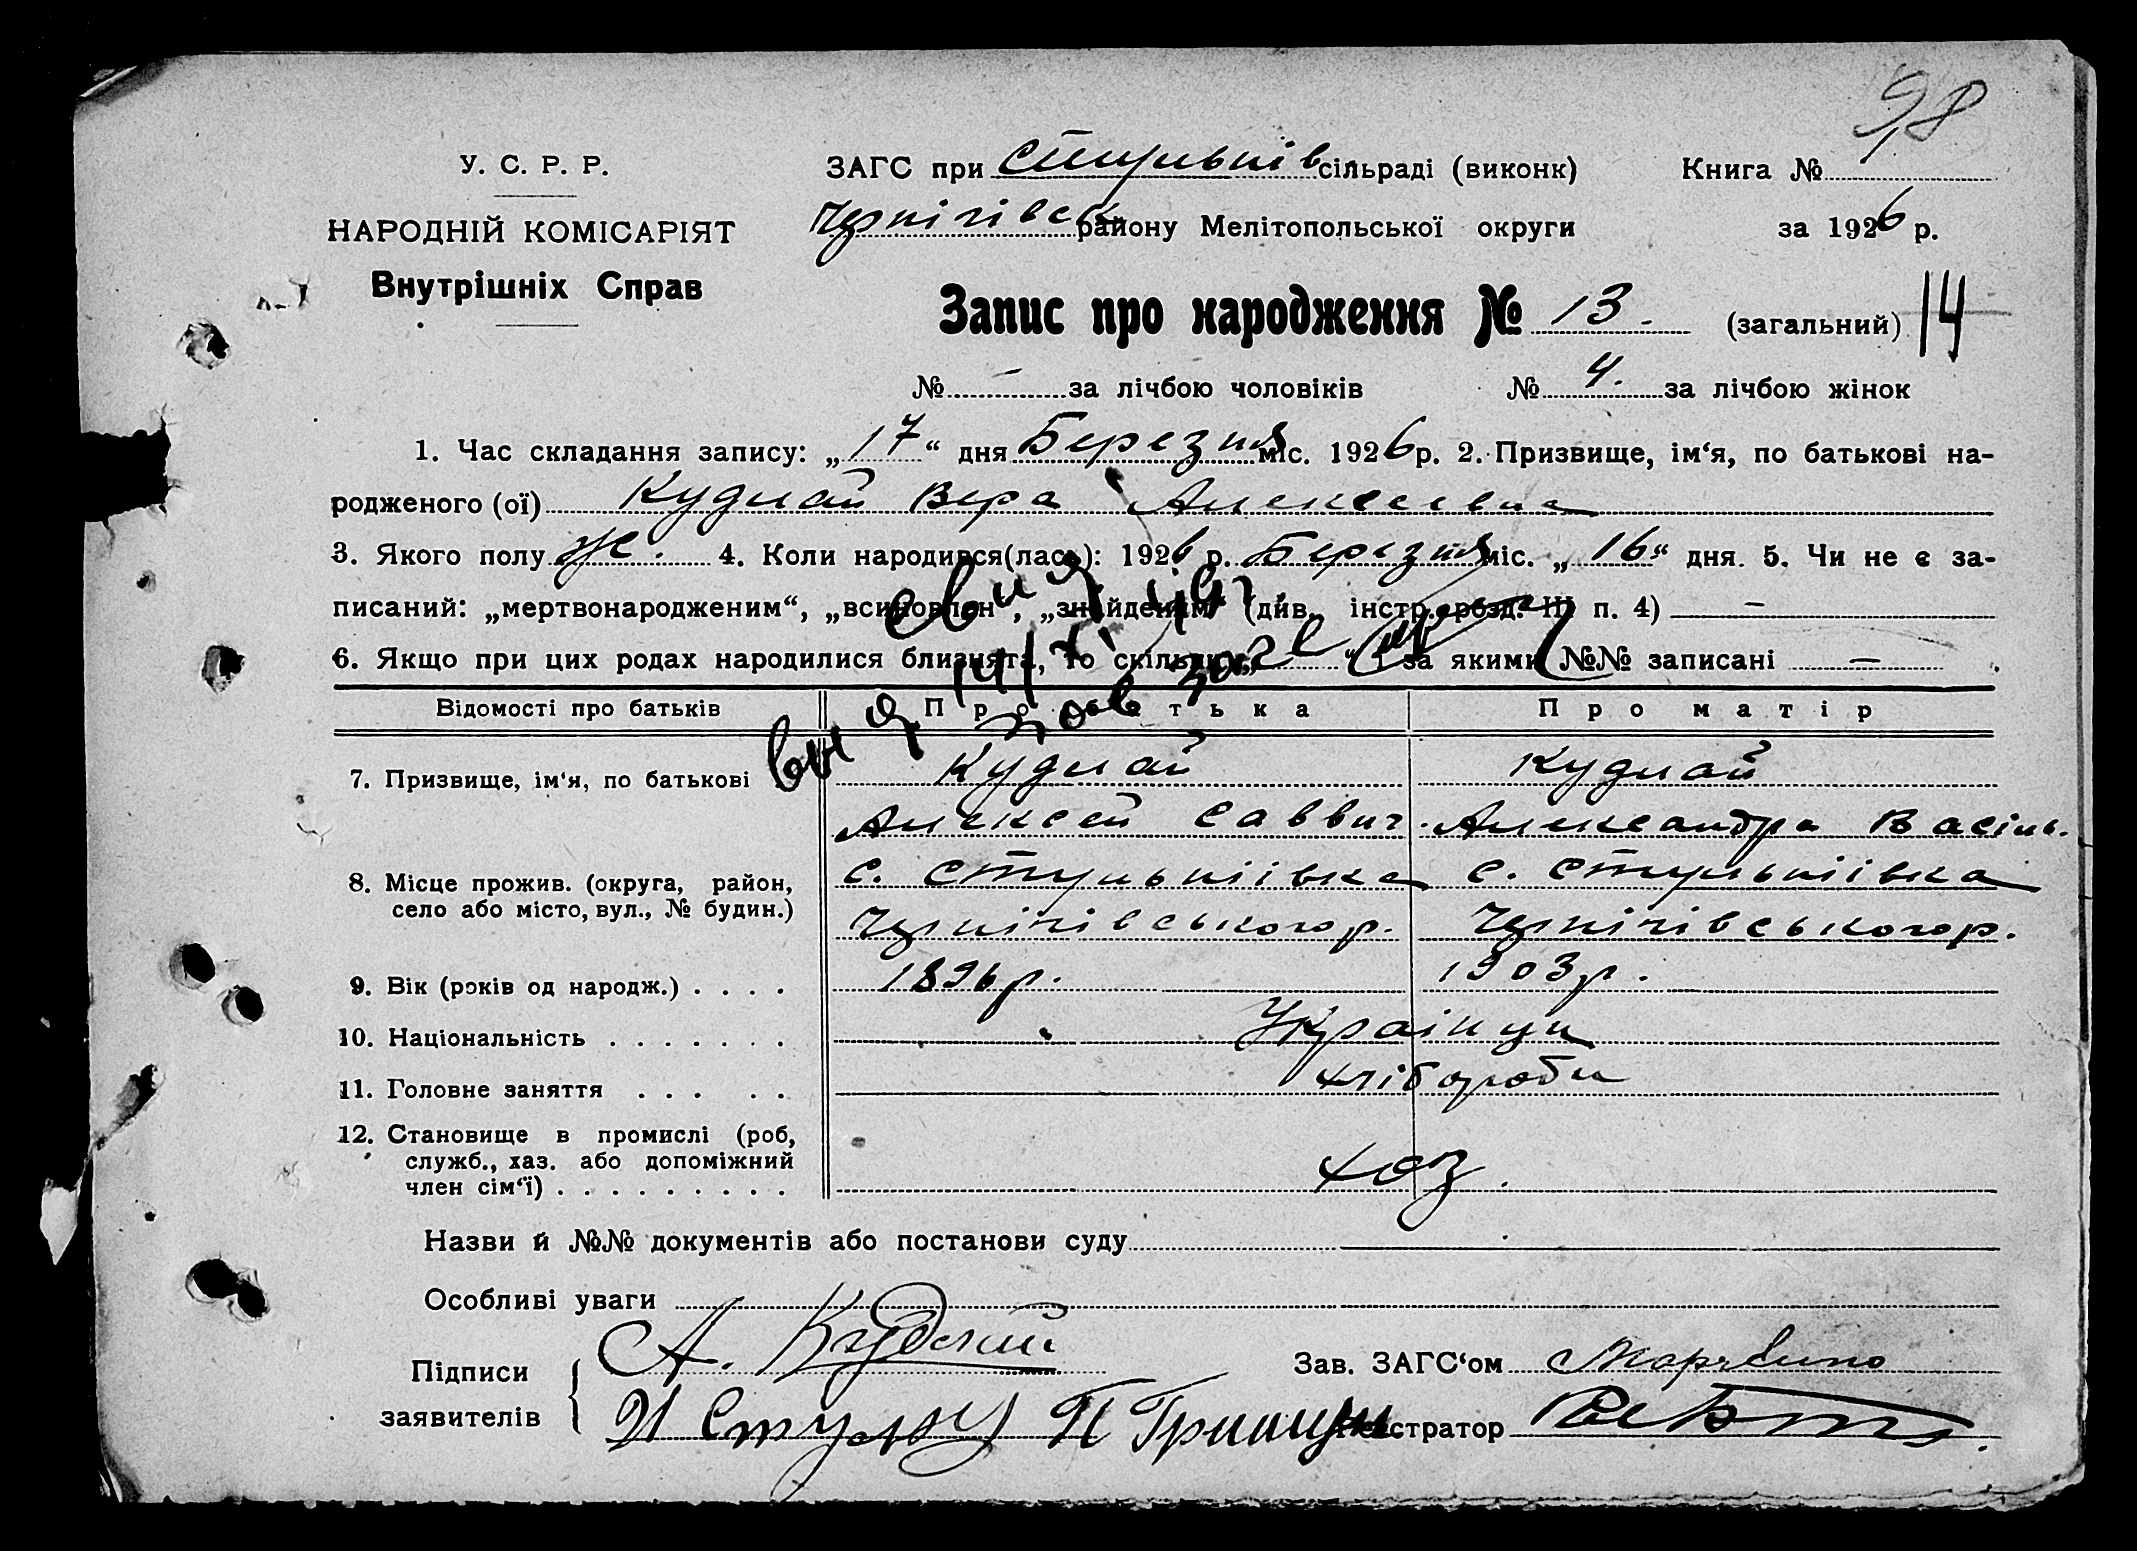 98
У. С. Р. Р.
НАРОДНІЙ КОМІСАРІЯТ
Внутрішніх Справ
ЗАГС при Стульнів сільраді (виконк)
Чернігівськ району Мелітопольської округи
Книга №
за 1926 р.
Запис про народження № 13. (загальний) 14
№ — за лічбою чоловіків № 4. за лічбою жінок
1. Час складання запису: „17“ дня Березня міс. 1926 р. 2. Призвище, ім‘я, по батькові на-
родженого (ої) Кудлай Вера Алексеевна
3. Якого полу ж. 4. Коли народився(лась): 1926 р. Березня міс. „16“ дня. 5. Чи не є за-
писаний: „мертвонародженим“, „всиновлен“, „знайденим“ (див. інстр. розд. III п. 4) —
6. Якщо при цих родах народилися близнята, то скільки „ “ і за якими №№ записані —
Відомості про батьків Про батька Про матір
7. Призвище, ім‘я, по батькові Кудлай Кудлай
Алексей Саввич. Александра Васіль.
8. Місце прожив. (округа, район, село або місто, вул., № будин.) с. Стульніївка с. Стульніївка
Чернігівського р. Чернігівського р.
9. Вік (років од народж.) . . . . 1896 р. 1903 р.
10. Національність . . . . . . . Українци
11. Головне заняття . . . . . хлібороби
12. Становище в промислі (роб, служб., хаз. або допоміжний член сім‘ї) . . . . . . . . . хоз.
Назви й №№ документів або постанови суду
Особливі уваги
Підписи заявителів А. Кудлай
Зав. ЗАГС‘ом
П Гриници
Реєстратор